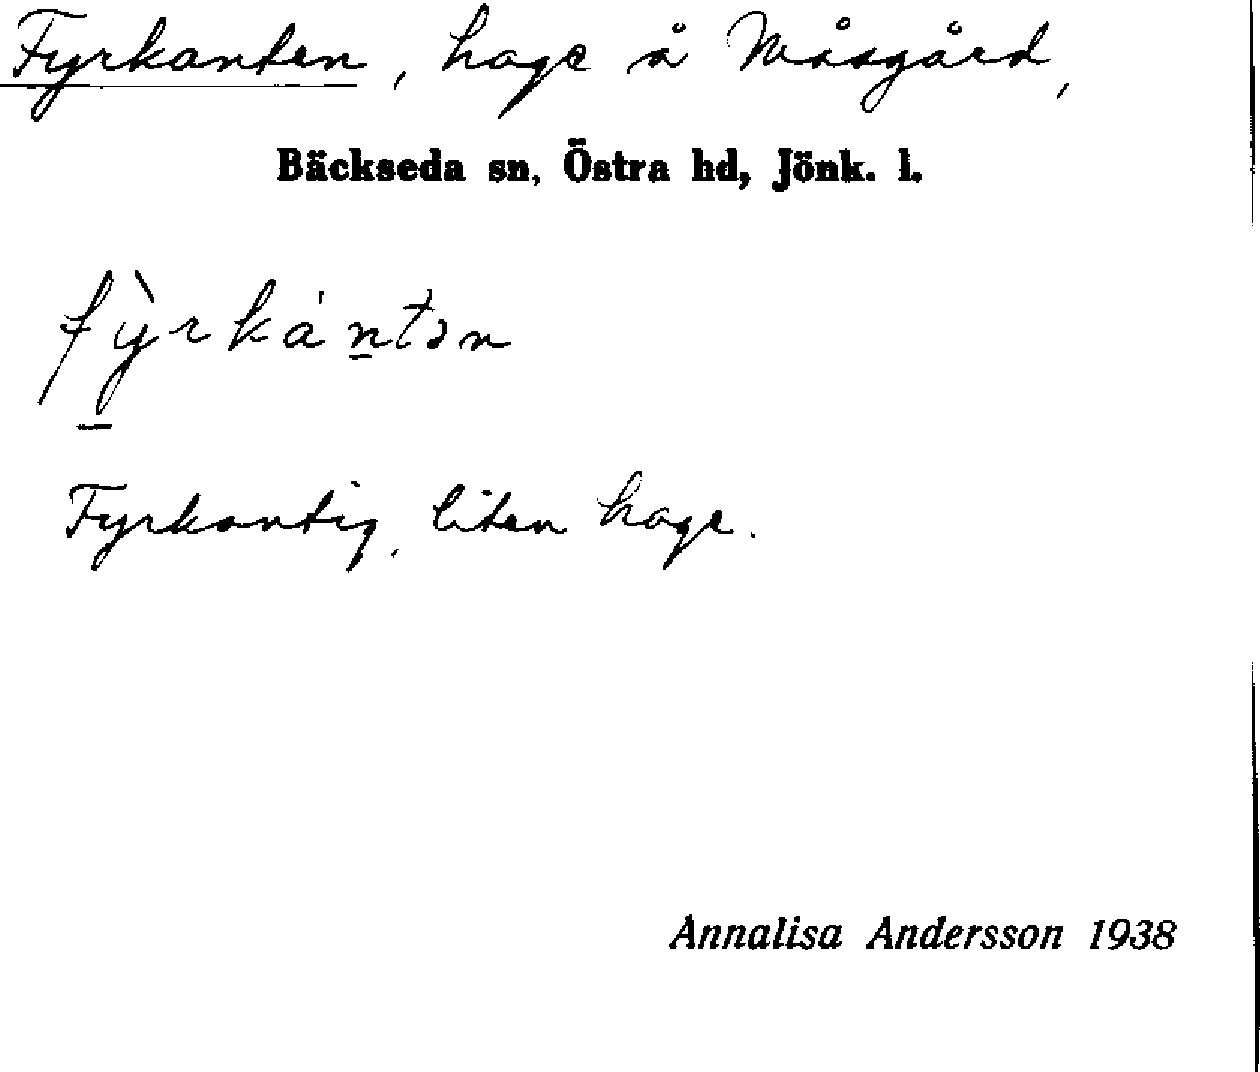 Fyrkanten, hage å Måsgård,
Bäckseda sn, Östra hd, Jönk. l.
fỳrkántən
Fyrkantig, liten hage.
Annalisa Andersson 1938